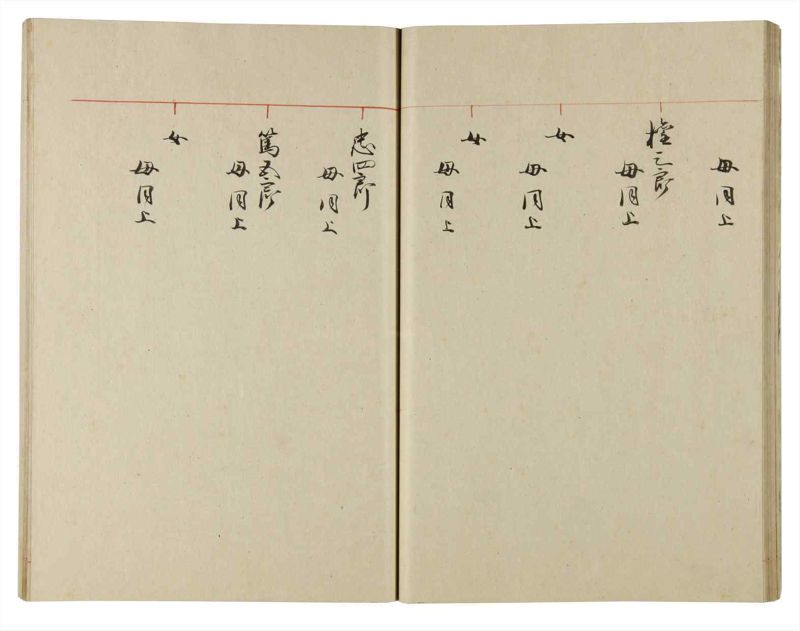 母同上
権三郎
母同上
女
母同上
女
母同上
忠四郎
母同上
篤五郎
母同上
女
母同上